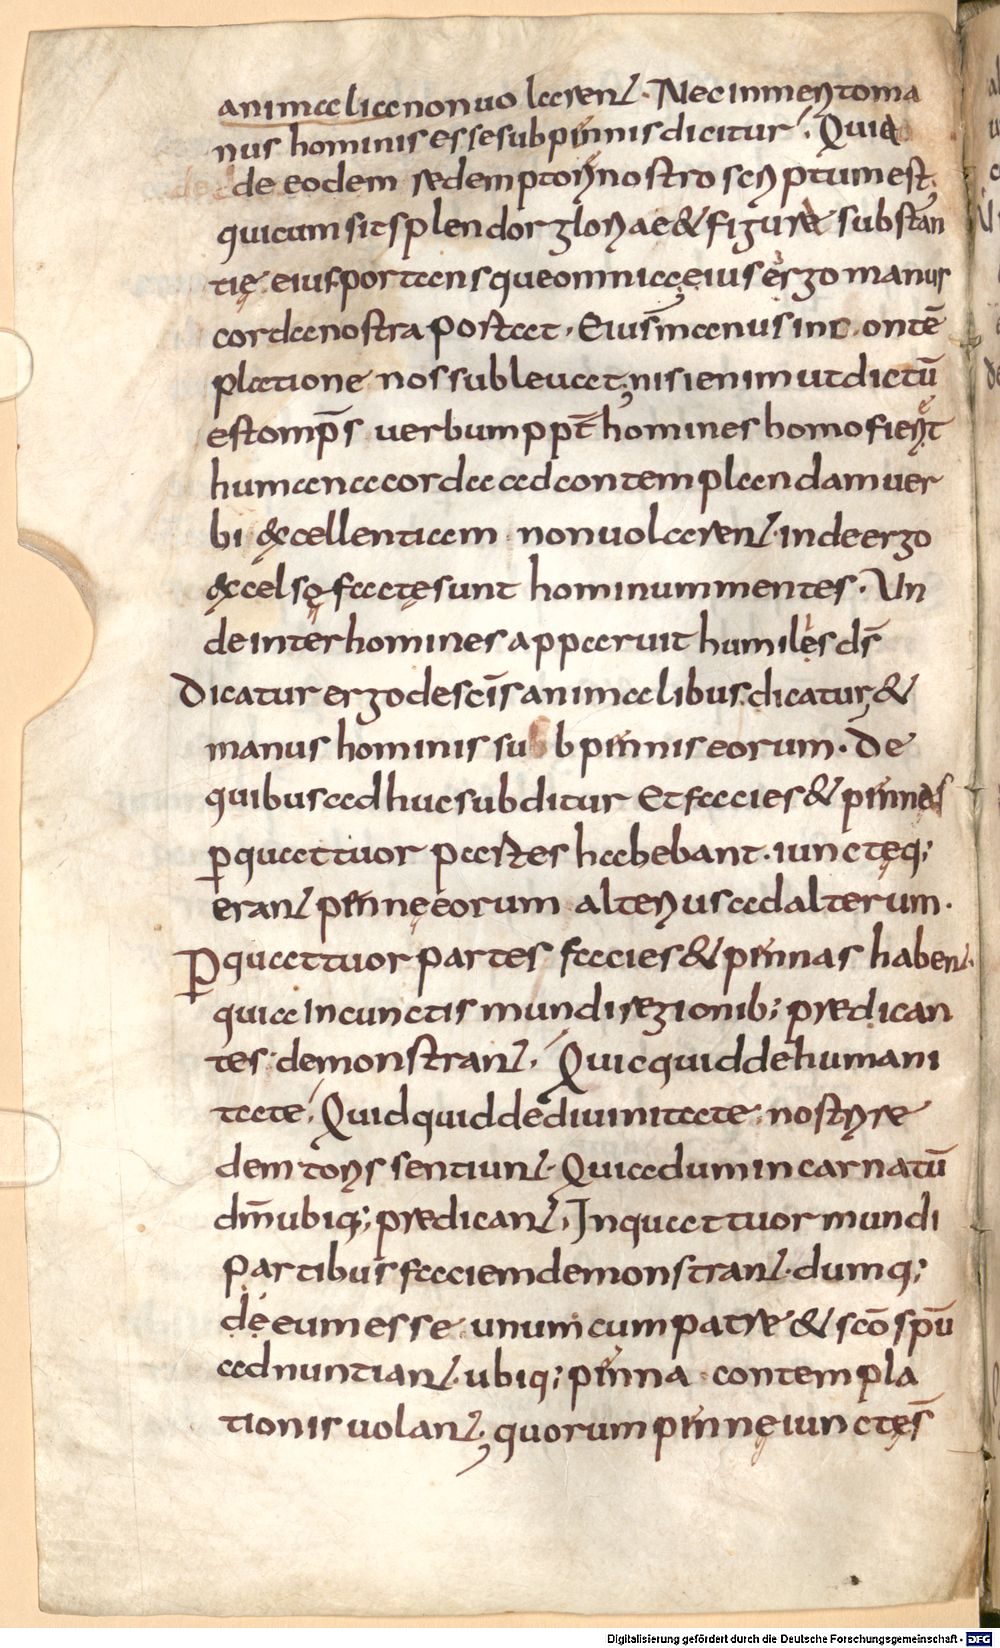 animalia non uolarent. Nec inmerito ma
nus hominis esse sub pinnis dicitur. Quia
de eodem redemptori nostro scriptum est;
qui cum sit splendor gloriae & figura substan
tię eius portansque omnia eius ergo manus
corda nostra portat. Eius manus in c ontē
platione nos subleuat; nisi enim ut dictū
est omp̄s uerbum ppt̄ homines homo fieret
humana corda ad contemplandam uer
bi excellentiam non uolarent. inde ergo
excelsę factę sunt hominum mentes. Un
de inter homines apparuit humiles ds̄
Dicatur ergo de scīs animalibus dicatur &
manus hominis su b pinnis eorum. De
quibus adhuc subditur Et facies & pinnas
p̱ quattuor partes habebant. iunctęq;
erant pinnę eorum alterius ad alterum.
P̱ quattuor partes facies & pinnas habent.
quia in cunctis mundi regionib; predican
tes demonstrant. Quicquid de humani
tate. Quidquid de diuinitate nostri re
demtoris sentiunt. Quia dum incarnatū
dm̄ ubiq; predicant. In quattuor mundi
partibus faciem demonstrant. dumq;
de eum esse unum cum patre & scō spū
adnuntiant. ubiq; pinna contempla
tionis uolant; quorum pinnę iunctęs̄